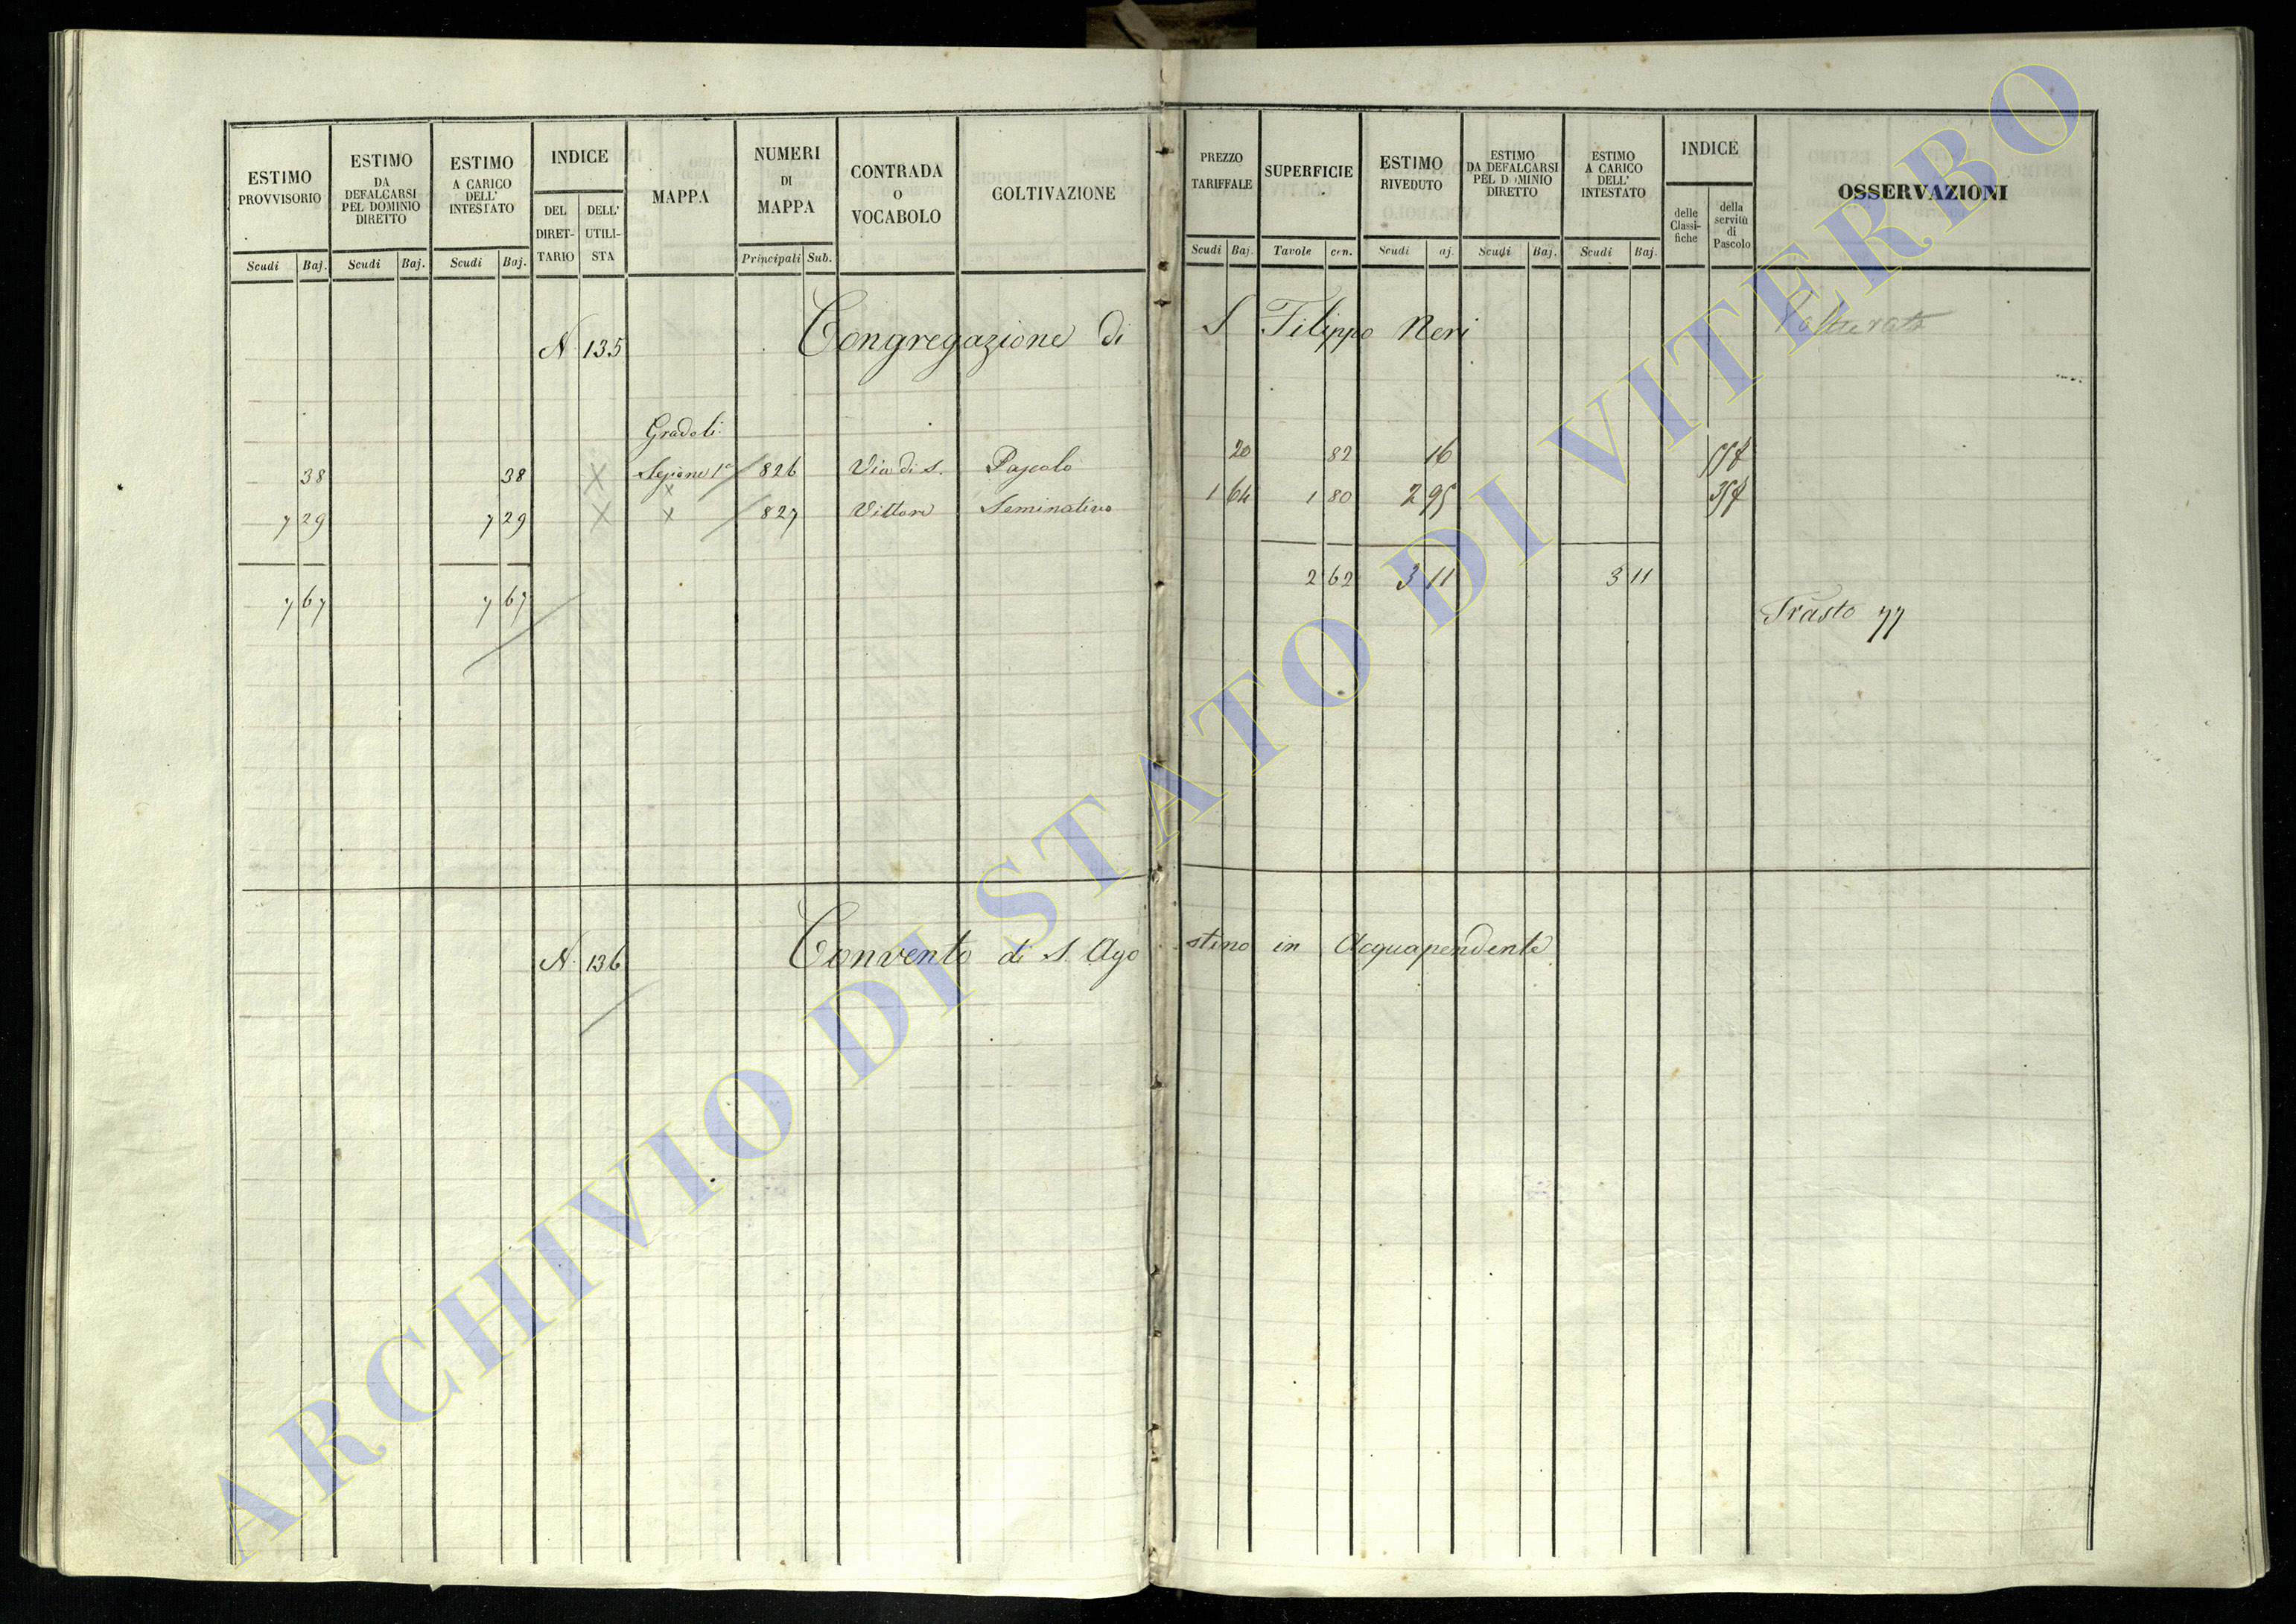 ESTIMO PROVVISORIO
Scudi Baj.
ESTIMO DA DEFALCARSI PEL DOMINIO DIRETTO
Scudi Baj.
ESTIMO A CARICO DELL' INTESTATO
Scudi Baj.
INDICE
DEL DIRET-TARIO
DELL' UTILI-STA
MAPPA
NUMERI DI MAPPA
Principali Sub.
CONTRADA O VOCABOLO
COLTIVAZIONE
PREZZO TARIFFALE
Scudi Baj.
SUPERFICIE
Tavole cen.
ESTIMO RIVEDUTO
Scudi aj.
ESTIMO DA DEFALCARSI PEL DOMINIO DIRETTO
Scudi Baj.
ESTIMO A CARICO DELL' INTESTATO
Scudi Baj.
INDICE
delle Classi-fiche
della servitù di Pascolo
OSSERVAZIONI
N. 135 Congregazione di S Filippo Neri
Gradoli
38 38 X Sezione 1a 826 Via di S. Pascolo 20 82 16
7 29 7 29 X X 827 Vittore Seminativo 1 64 1 80 2 95
7 67 7 67 2 62 3 11 3 11
Trasto 77
N. 136 Convento di S. Ago stino in Acquapendente
ARCHIVIO DI STATO DI VITERBO